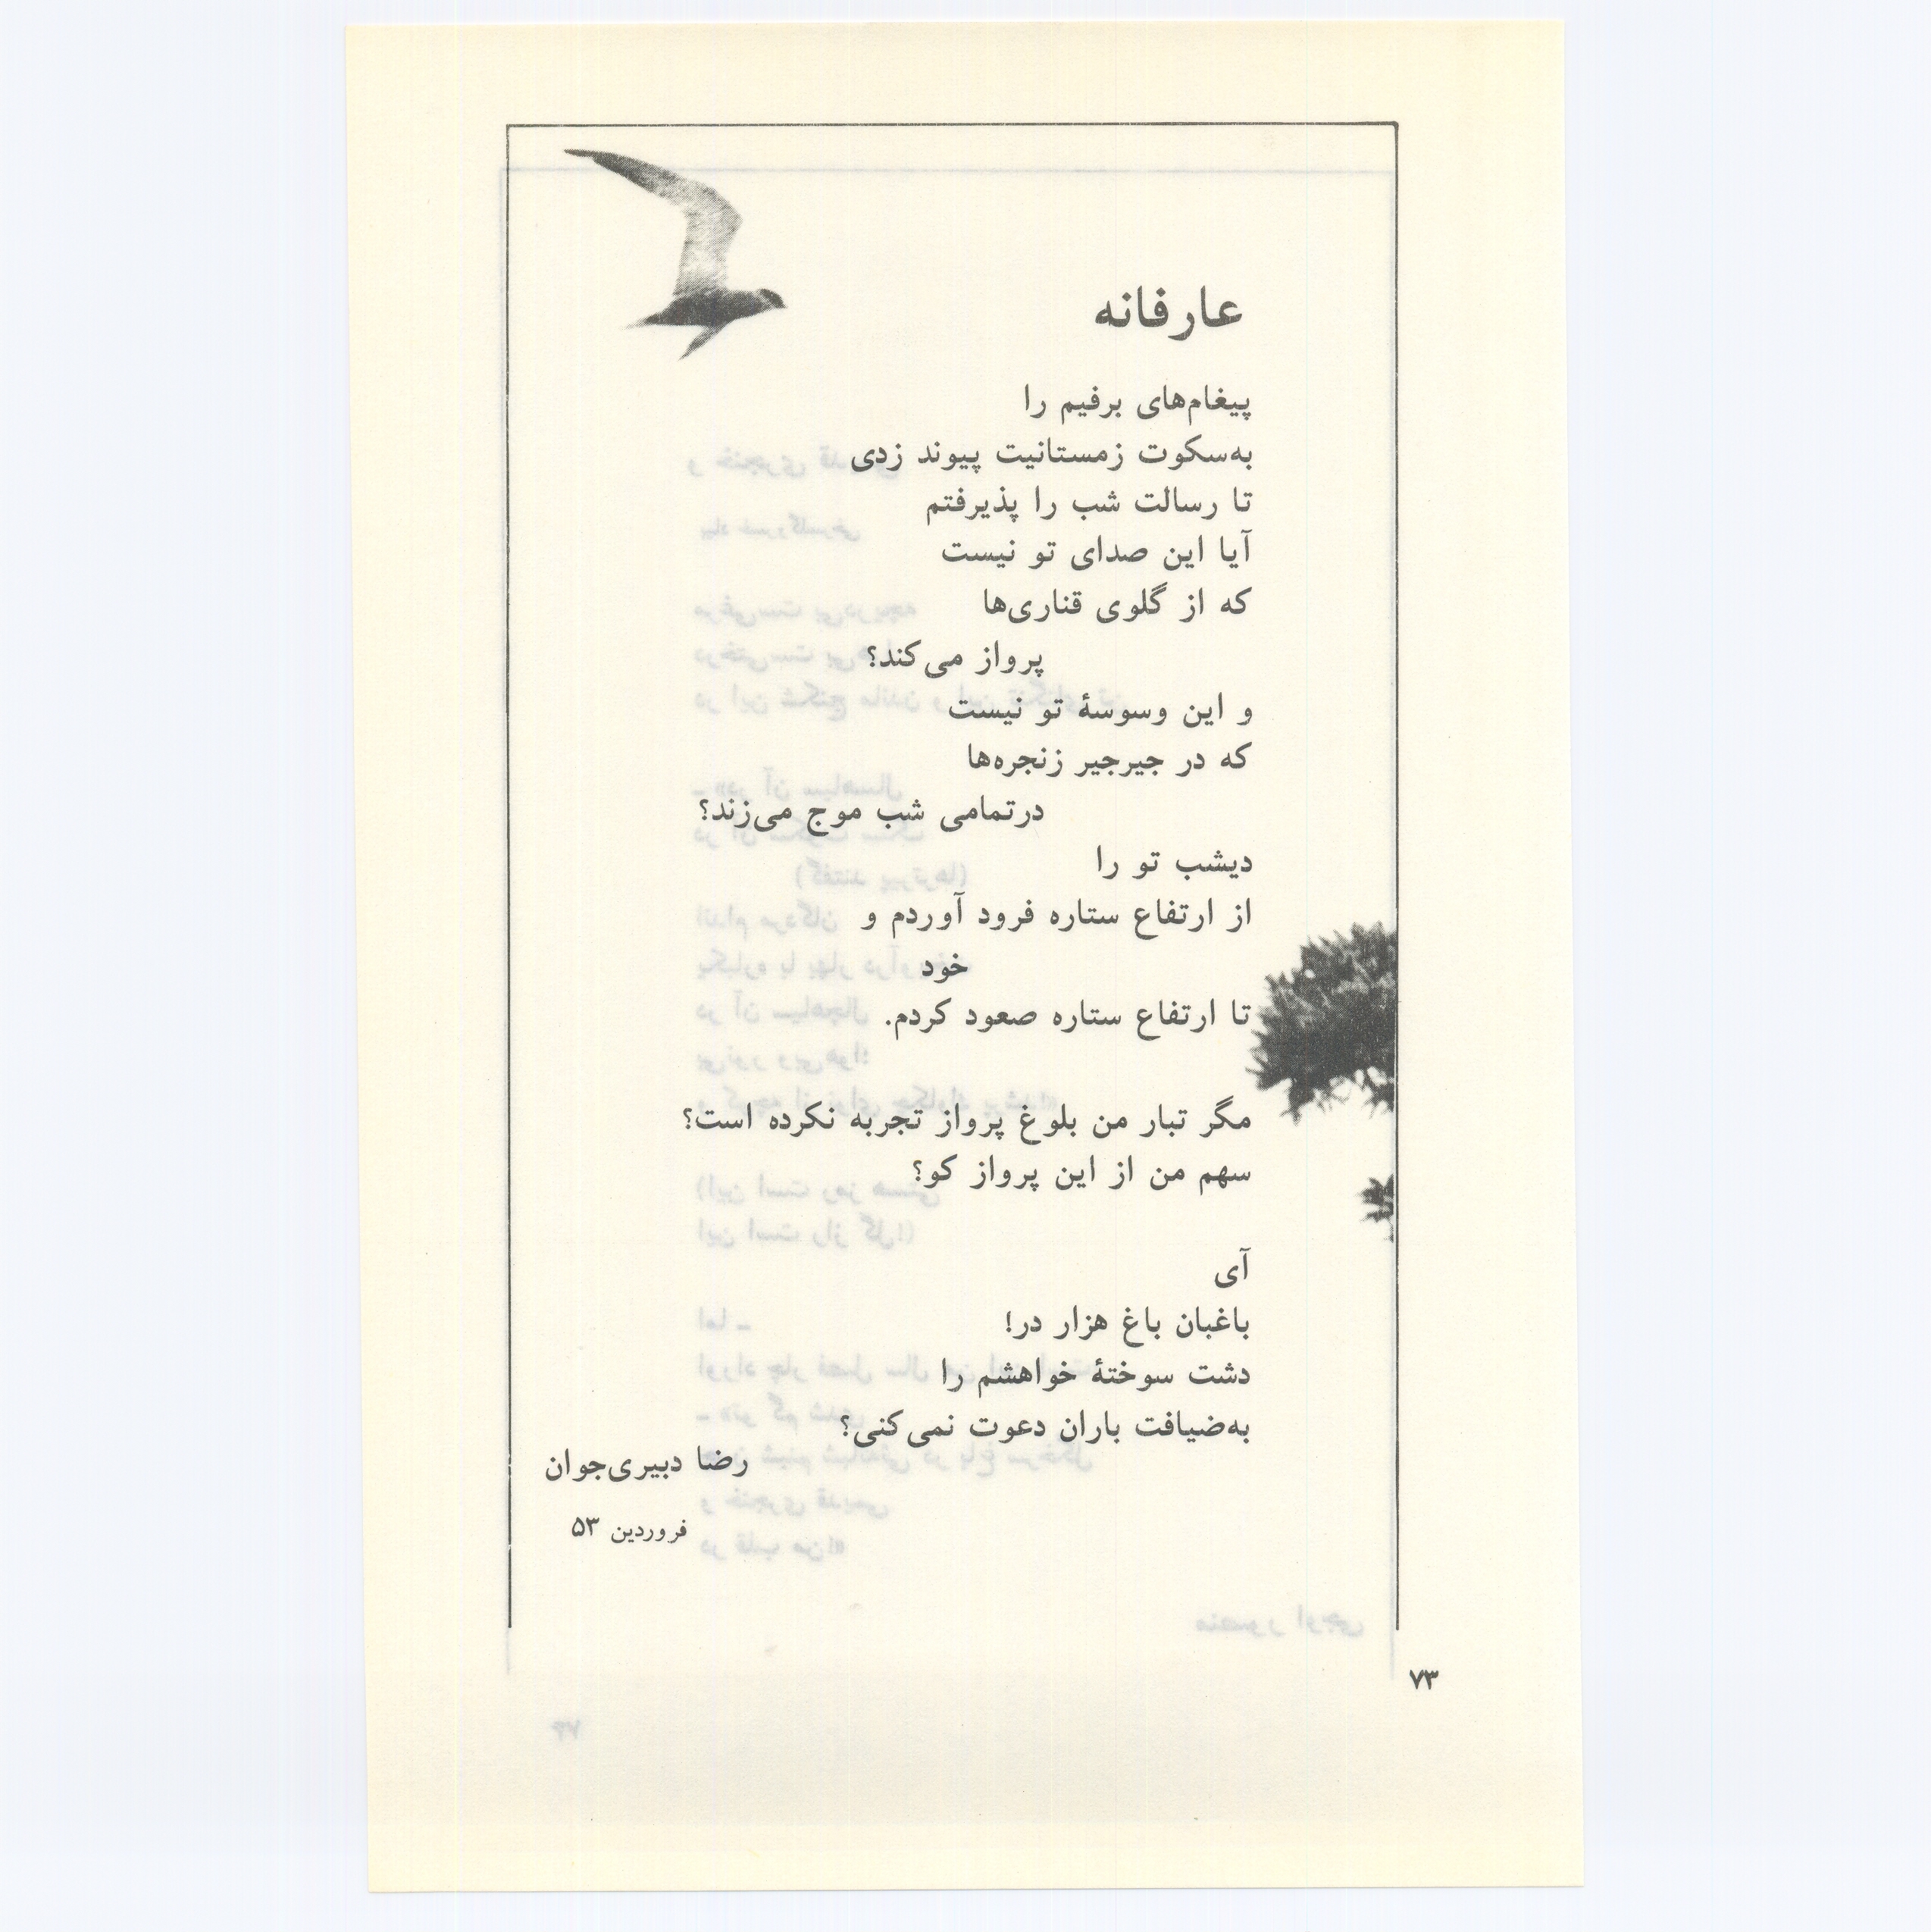 عارفانه
پیغام‌های برفیم را
به‌سکوت زمستانیت پیوند زدی
تا رسالت شب را پذیرفتم
آیا این صدای تو نیست
که از گلوی قناری‌ها
پرواز می‌کند؟
و این وسوسهٔ تو نیست
که در جیرجیر زنجره‌ها
درتمامی شب موج می‌زند؟
دیشب تو را
از ارتفاع ستاره فرود آوردم و
خود
تا ارتفاع ستاره صعود کردم.
مگر تبار من بلوغ پرواز تجربه نکرده است؟
سهم من از این پرواز کو؟
آی
باغبان باغ هزار در!
دشت سوختهٔ خواهشم را
به‌ضیافت باران دعوت نمی‌کنی؟
رضا دبیری‌جوان
فروردین ۵۳
۷۳